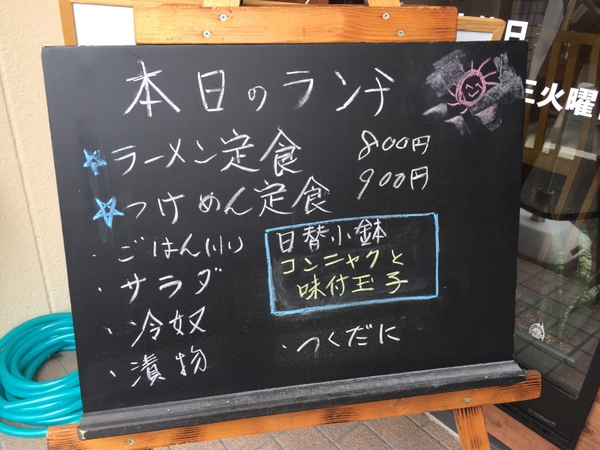 本日のランチ
☆ラーメン定食 800円
☆つけめん定食 900円
・ごはん(小)
・サラダ
・冷奴
・漬物
日替小鉢
コンニャクと
味付玉子
・つくだに
日
三火曜日